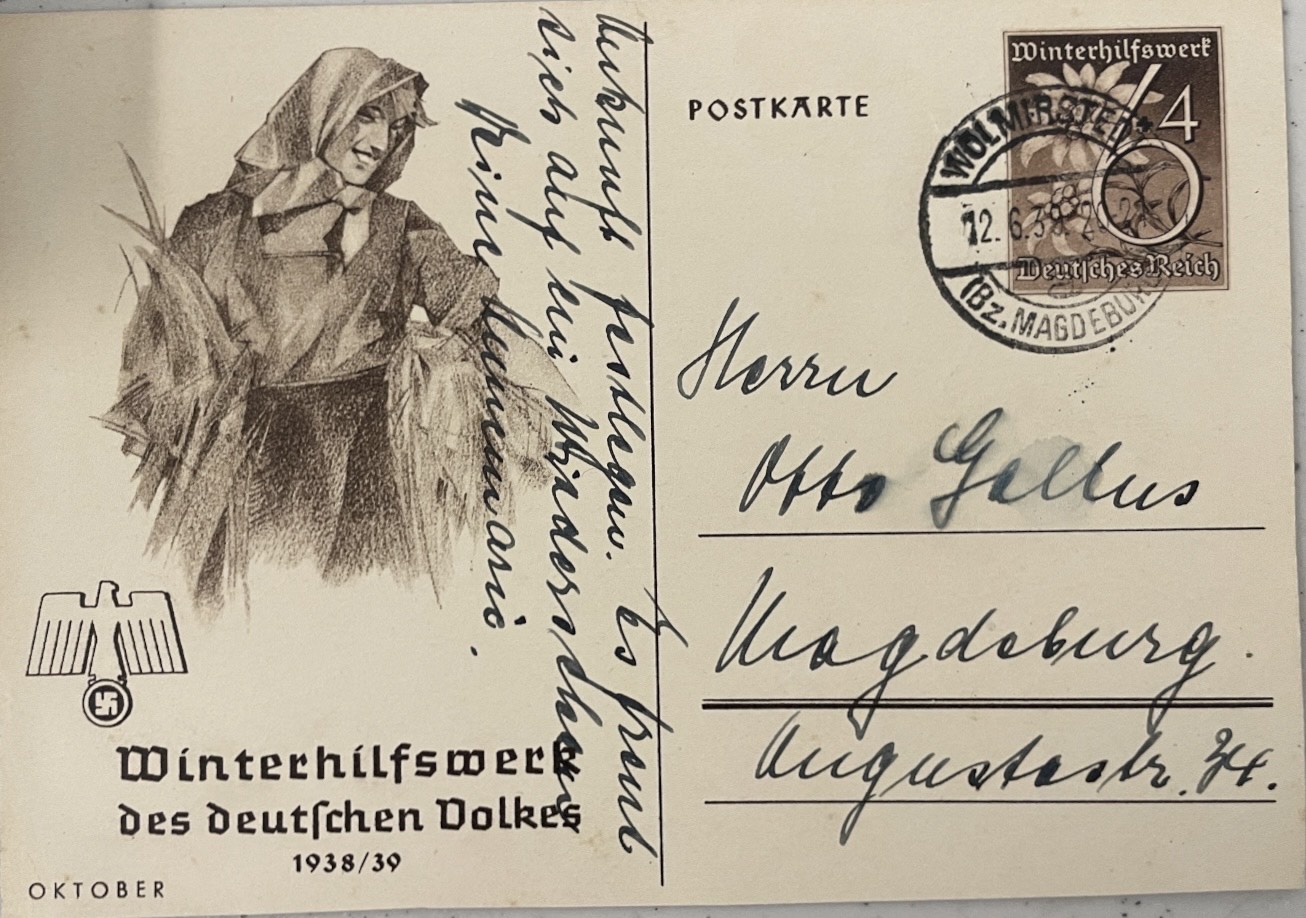 POSTKARTE
Winterhilfswerk
6+4
Deutsches Reich
WOLMIRSTEDT *
12.6.39.
(Bz. MAGDEBURG)
Herrn
Otto Gallus
Magdeburg.
Augustastr. 34.
Ankunft festlegen. Es freut
sich auf ein Wiedersehen
Deine Annemarie.
Winterhilfswerk
des deutschen Volkes
1938/39
OKTOBER